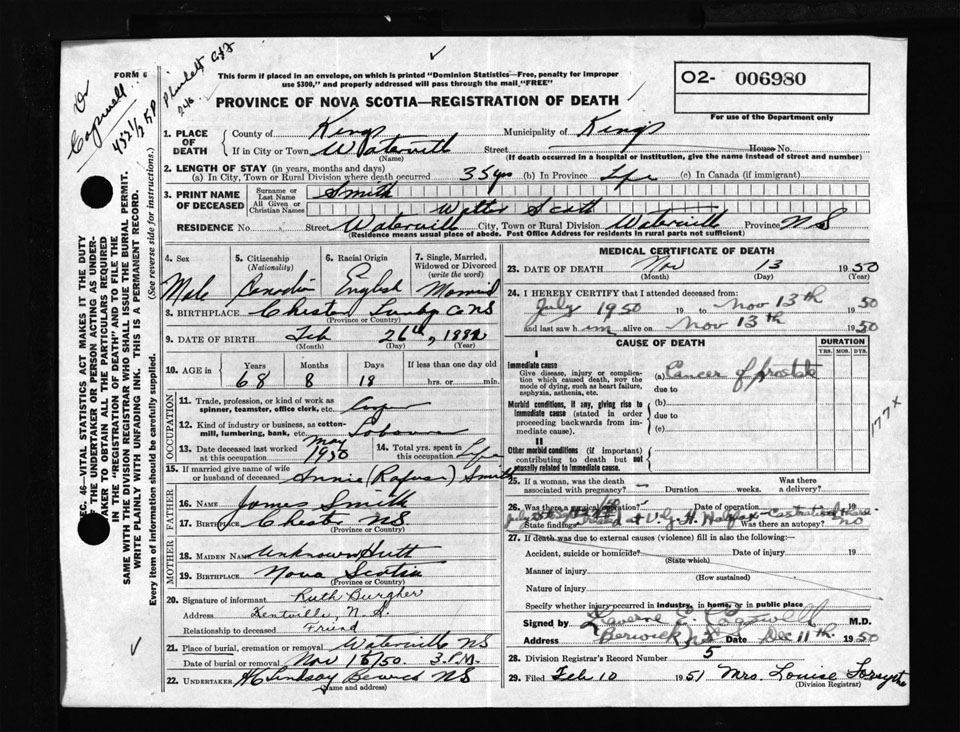 FORM 6
Dr
Cogswell
432½ RP
246
✓
This form if placed in an envelope, on which is printed "Dominion Statistics—Free, penalty for improper
use $300," and properly addressed will pass through the mail "FREE"
PROVINCE OF NOVA SCOTIA—REGISTRATION OF DEATH
O2- 006980
For use of the Department only
SEC. 46—VITAL STATISTICS ACT MAKES IT THE DUTY
OF THE UNDERTAKER OR PERSON ACTING AS UNDER-
TAKER TO OBTAIN ALL THE PARTICULARS REQUIRED
IN THE "REGISTRATION OF DEATH" AND TO FILE THE
SAME WITH THE DIVISION REGISTRAR WHO SHALL ISSUE THE BURIAL PERMIT.
WRITE PLAINLY WITH UNFADING INK. THIS IS A PERMANENT RECORD.
(See reverse side for instructions.)
Every item of information should be carefully supplied.
1. PLACE OF DEATH County of Kings Municipality of Kings
If in City or Town Waterville Street House No.
(Name) (If death occurred in a hospital or institution, give the name instead of street and number)
2. LENGTH OF STAY (in years, months and days)
(a) In City, Town or Rural Division where death occurred 35 yrs (b) In Province Life (c) In Canada (if immigrant)
3. PRINT NAME OF DECEASED Surname or Last Name Smith
All Given or Christian Names Walter Scott
RESIDENCE No. Street Waterville City, Town or Rural Division Waterville Province NS
(Residence means usual place of abode. Post Office Address for residents in rural parts not sufficient)
4. Sex 5. Citizenship (Nationality) 6. Racial Origin 7. Single, Married, Widowed or Divorced (write the word)
Male Canadian English Married
8. BIRTHPLACE Chester Lunbg Co NS
(Province or Country)
9. DATE OF BIRTH Feb 26th, 1882
(Month) (Day) (Year)
10. AGE in Years Months Days If less than one day old
68 8 18 hrs. or min.
OCCUPATION
11. Trade, profession, or kind of work as
spinner, teamster, office clerk, etc.
12. Kind of industry or business, as cotton-
mill, lumbering, bank, etc.
13. Date deceased last worked at this occupation May 1950 14. Total yrs. spent in this occupation Life
15. If married give name of wife
or husband of deceased Annie (Rafuse) Smith
FATHER
16. NAME James Smith
17. BIRTHPLACE Chester NS
(Province or Country)
MOTHER
18. MAIDEN NAME Unknown Hutt
19. BIRTHPLACE Nova Scotia
(Province or Country)
20. Signature of informant Ruth Burgher
Address Kentville, N.S.
Relationship to deceased Friend
21. Place of burial, cremation or removal Waterville NS
Date of burial or removal Nov 15/50. 3 P.M.
22. UNDERTAKER H C Lindsay Berwick NS
(Name and address)
MEDICAL CERTIFICATE OF DEATH
23. DATE OF DEATH Nov 13 1950
(Month) (Day)
24. I HEREBY CERTIFY that I attended deceased from:
July 1950 19 to Nov 13th 1950
and last saw him alive on Nov 13th 1950
CAUSE OF DEATH
DURATION
YRS. MOS. DYS.
I
Immediate cause
Give disease, injury or complica-
tion which caused death, not the
mode of dying, such as heart failure,
asphyxia, asthenia, etc.
(a) Cancer of prostate
due to
Morbid conditions, if any, giving rise to
immediate cause (stated in order
proceeding backwards from im-
mediate cause).
(b)
due to
(c)
177x
II
Other morbid conditions (if important)
contributing to death but not
causally related to immediate cause.
25. If a woman, was the death
associated with pregnancy? – Duration weeks. Was there a delivery?
26. Was there a surgical operation? Date of operation 19
State findings at V.G.H. Halifax - Castration
Was there an autopsy? no
27. If death was due to external causes (violence) fill in also the following:—
Accident, suicide or homicide? Date of injury 19
(State which)
Manner of injury
(How sustained)
Nature of injury
Specify whether injury occurred in industry, in home, or in public place
Signed by Laverne E. Cogswell M.D.
Address Berwick NS Date Dec 11th 1950
28. Division Registrar's Record Number 5
29. Filed Feb 10 1951 Mrs. Louise Forsythe
(Division Registrar)